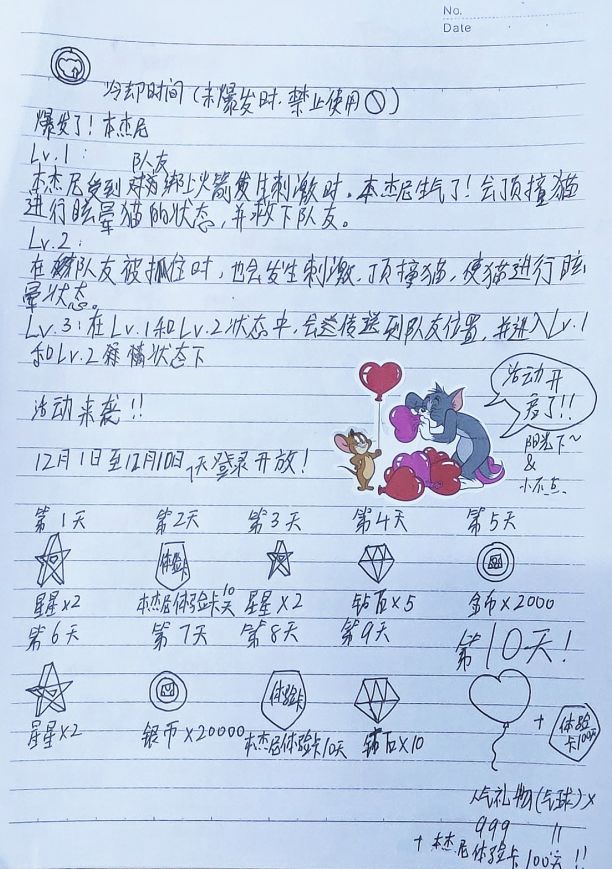 No.
Date
冷却时间(未爆发时.禁止使用)
爆发了!本杰尼
Lv.1:
队友
本杰尼受到对方绑上火箭发生刺激时.本杰尼生气了!会顶撞猫
进行眩晕猫的状态,并救下队友。
Lv.2:
在队友被抓住时,也会发生刺激.顶撞猫,使猫进行眩
晕状态。
Lv.3:在Lv.1和Lv.2状态中,会传送到队友位置,并进入Lv.1
和Lv.2状态下
活动来袭!!
12月1日至12月10日 登录开放!
活动开
了!!
阳光下~
&
小不点
第1天 第2天 第3天 第4天 第5天
体验卡
星星×2 本杰尼体验卡10天 星星×2 钻石×5 金币×2000
第6天 第7天 第8天 第9天 第10天!
体验卡
+ 体验
卡100天
星星×2 银币×20000 本杰尼体验卡10天 钻石×10
人气礼物(气球)×
999
+本杰尼体验卡100天!!